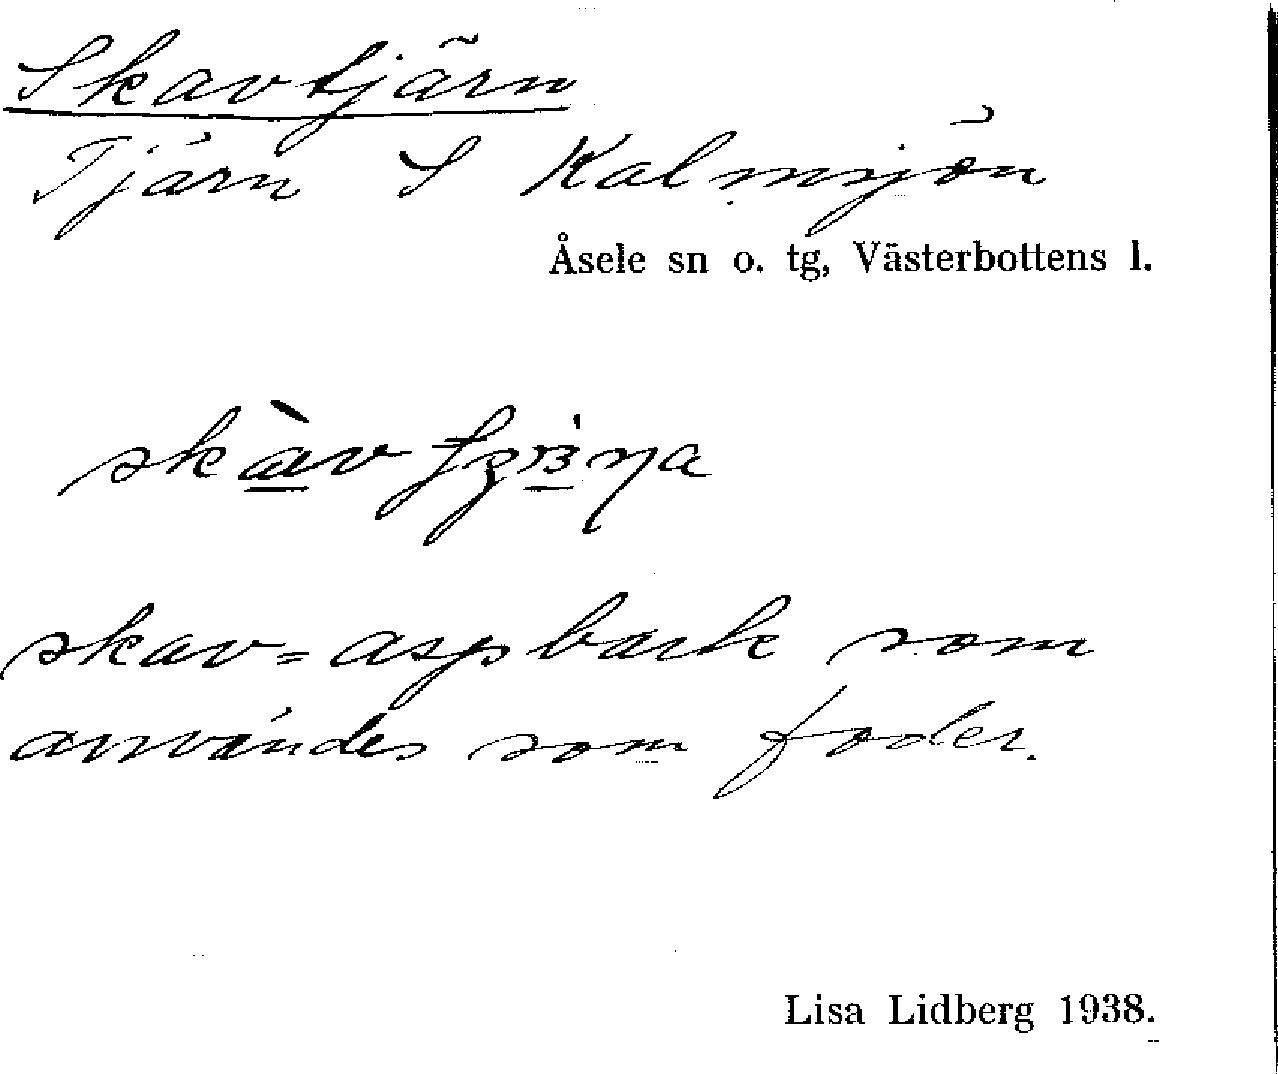 Skavtjärn
Tjärn S Kalmsjön
Åsele sn o. tg, Västerbottens l.
skav=aspbark som
användes som foder.
Lisa Lidberg 1938.